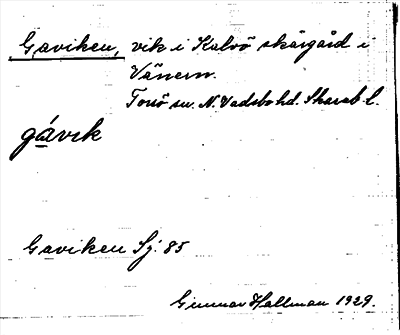 Gaviken, vik i Kalvö skärgård i
Vänern.
Torsö sn. N. Vadsbo hd. Skarab. l.
gávik
Gaviken Sj: 85
Gunnar Hallman 1929.